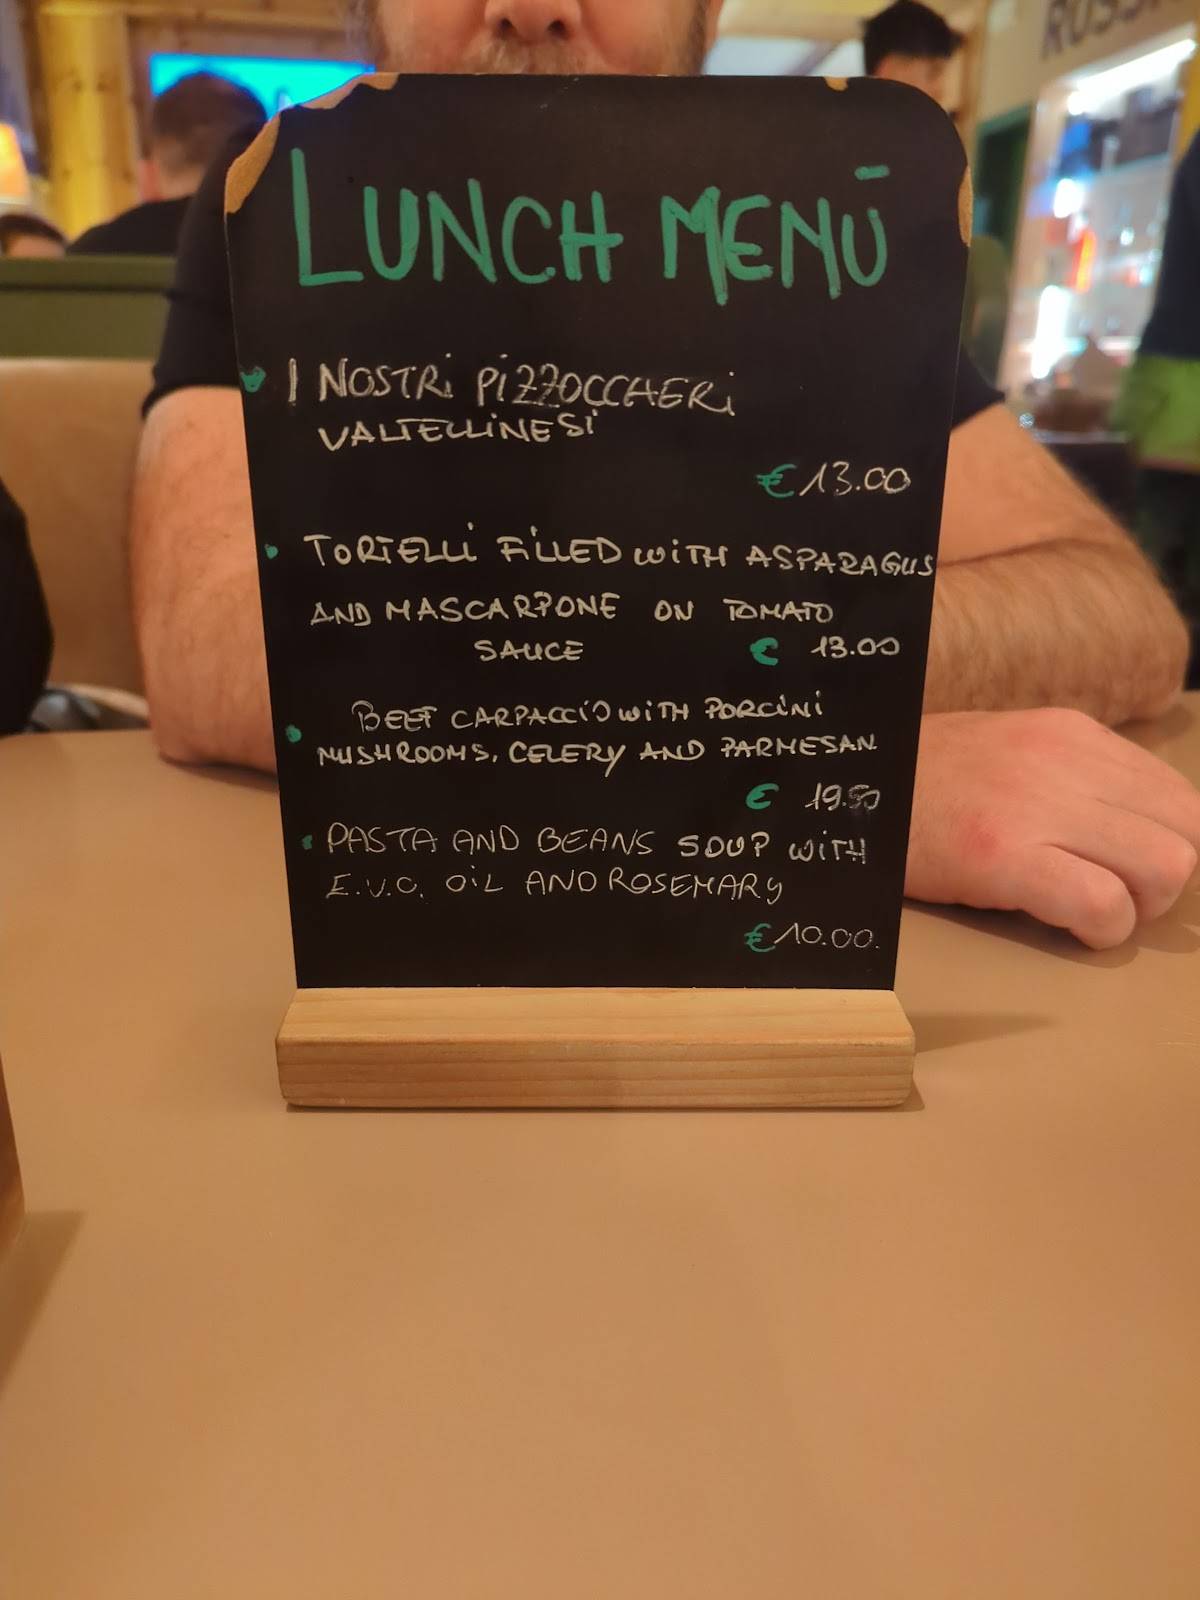 LUNCH MENŪ
I NOSTRI PIZZOCCHERI
VALTELLINESI
€ 13.00
TORTELLI FILLED WITH ASPARAGUS
AND MASCARPONE ON TOMATO
SAUCE € 13.00
BEEF CARPACCIO WITH PORCINI
MUSHROOMS, CELERY AND PARMESAN
€ 19.50
PASTA AND BEANS SOUP WITH
E.V.O. OIL AND ROSEMARY
€ 10.00.